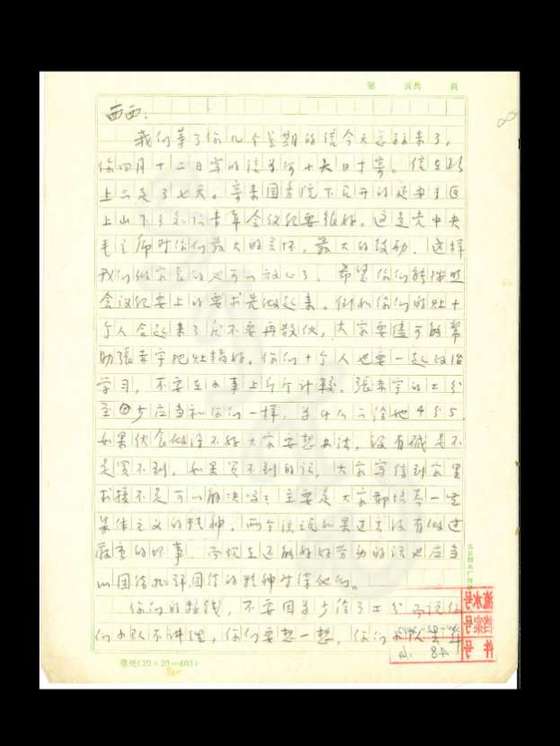 第 页共 页
西西:
我们等了你几个星期的信今天总算来了。
你四月十二日写的信为何十九日才寄。信在路
上只走了七天。国务院下召开的延安地区
上山下乡知识青年会议纪要很好。这是党中央
毛主席对你们最大的关怀,最大的鼓励,这样
我们做家长的也可以放心了。希望你们能按照
会议纪要上的要求去做起来。例如你们的灶十
个人合起来了就不要再散伙,大家要尽可能帮
助张宇把灶搞好。你们十个人也要一起政治
学习,不要在小事上斤斤计较。张宇的工分
至少应当和你们一样,为什么只给他4分5。
如果伙食做得不好大家要想办法,没有碱是不
是买不到。如果买不到的话,大家写信到家里
去不是可以解决吗?主要是大家都培养一些
集体主义的精神。两个如果过去没有做过
严重的坏事,而现在还能好好劳动的话也应当
以团结批评团结的精神对待他们。
你们的钱,不要因多给了工分而说他
们小队不讲理,你们要想一想,你们
稿纸(20×20=400)
流水号
档案号
件号